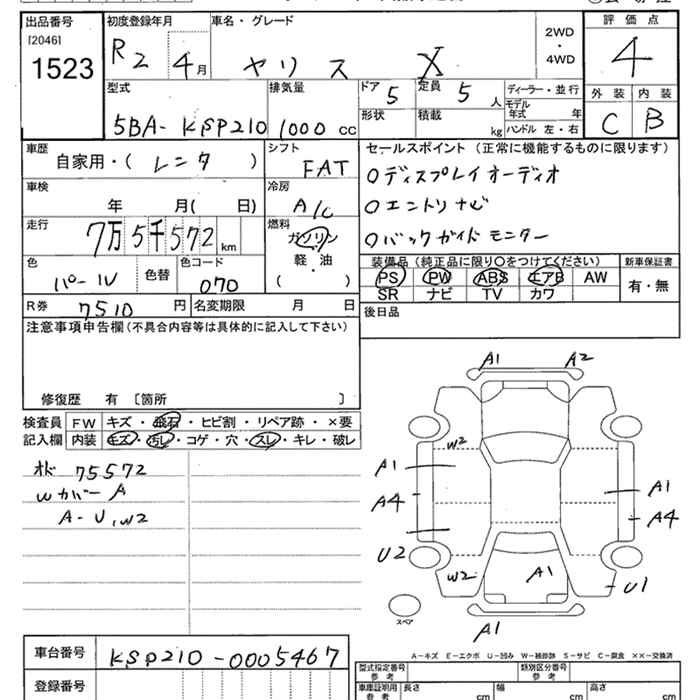 出品番号 初度登録年月 車名・グレード 評価点
[2046]
1523 R2 4月 ヤリス X 2WD・4WD 4
型式 排気量 ドア 5 定員 5人 ディーラー・並行 外装 内装
5BA-KSP210 1000cc 形状 積載 kg モデル年式 年 ハンドル 左・右 C B
車歴 自家用・(レンタ) シフト FAT セールスポイント (正常に機能するものに限ります)
車検 年 月(日) 冷房 A/C ○ディスプレイオーディオ
○エントリナビ
走行 7万5千572km 燃料 ガソリン 軽・油 ( ) ○バックガイドモニター
色 パール 色替 色コード 070 装備品(純正品に限り○をつけてください) 新車保証書
PS PW ABS エアB AW 有・無
SR ナビ TV カワ
R券 7510円 名変期限 月 日 後日品
注意事項申告欄(不具合内容等は具体的に記入して下さい)
修復歴 有 〔箇所 〕
検査員 FW キズ・飛石・ヒビ割・リペア跡・×要
記入欄 内装 キズ・汚レ・コゲ・穴・スレ・キレ・破レ
オド 75572
Wカバー A
A-U,W2
A1 A2
W2
A1 A1
A4 A4
U2
W2 A1 U1
スペア
A1
A-キズ E-エクボ U-凹み W-補修跡 S-サビ C-腐食 ××-交換済
車台番号 KSP210-0005467
型式指定番号 参考 類別区分番号 参考
登録番号 車庫証明用 参考 長さ cm 幅 cm 高さ cm